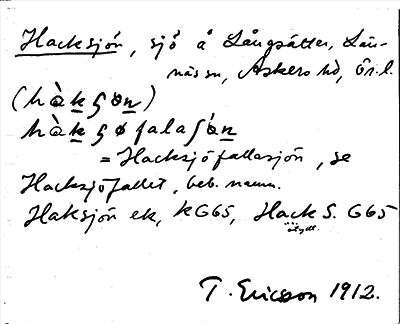 Hacksjön, sjö å Långsätter, Län-
näs sn, Askers hd, Ör. l.
(hàkʂøn)
hàkʂøfalaʃön
= Hacksjöfallasjön, se
Hacksjöfallet, beb. namn.
Haksjön ek, KG65, Hack S. G65
T. Ericsson 1912.